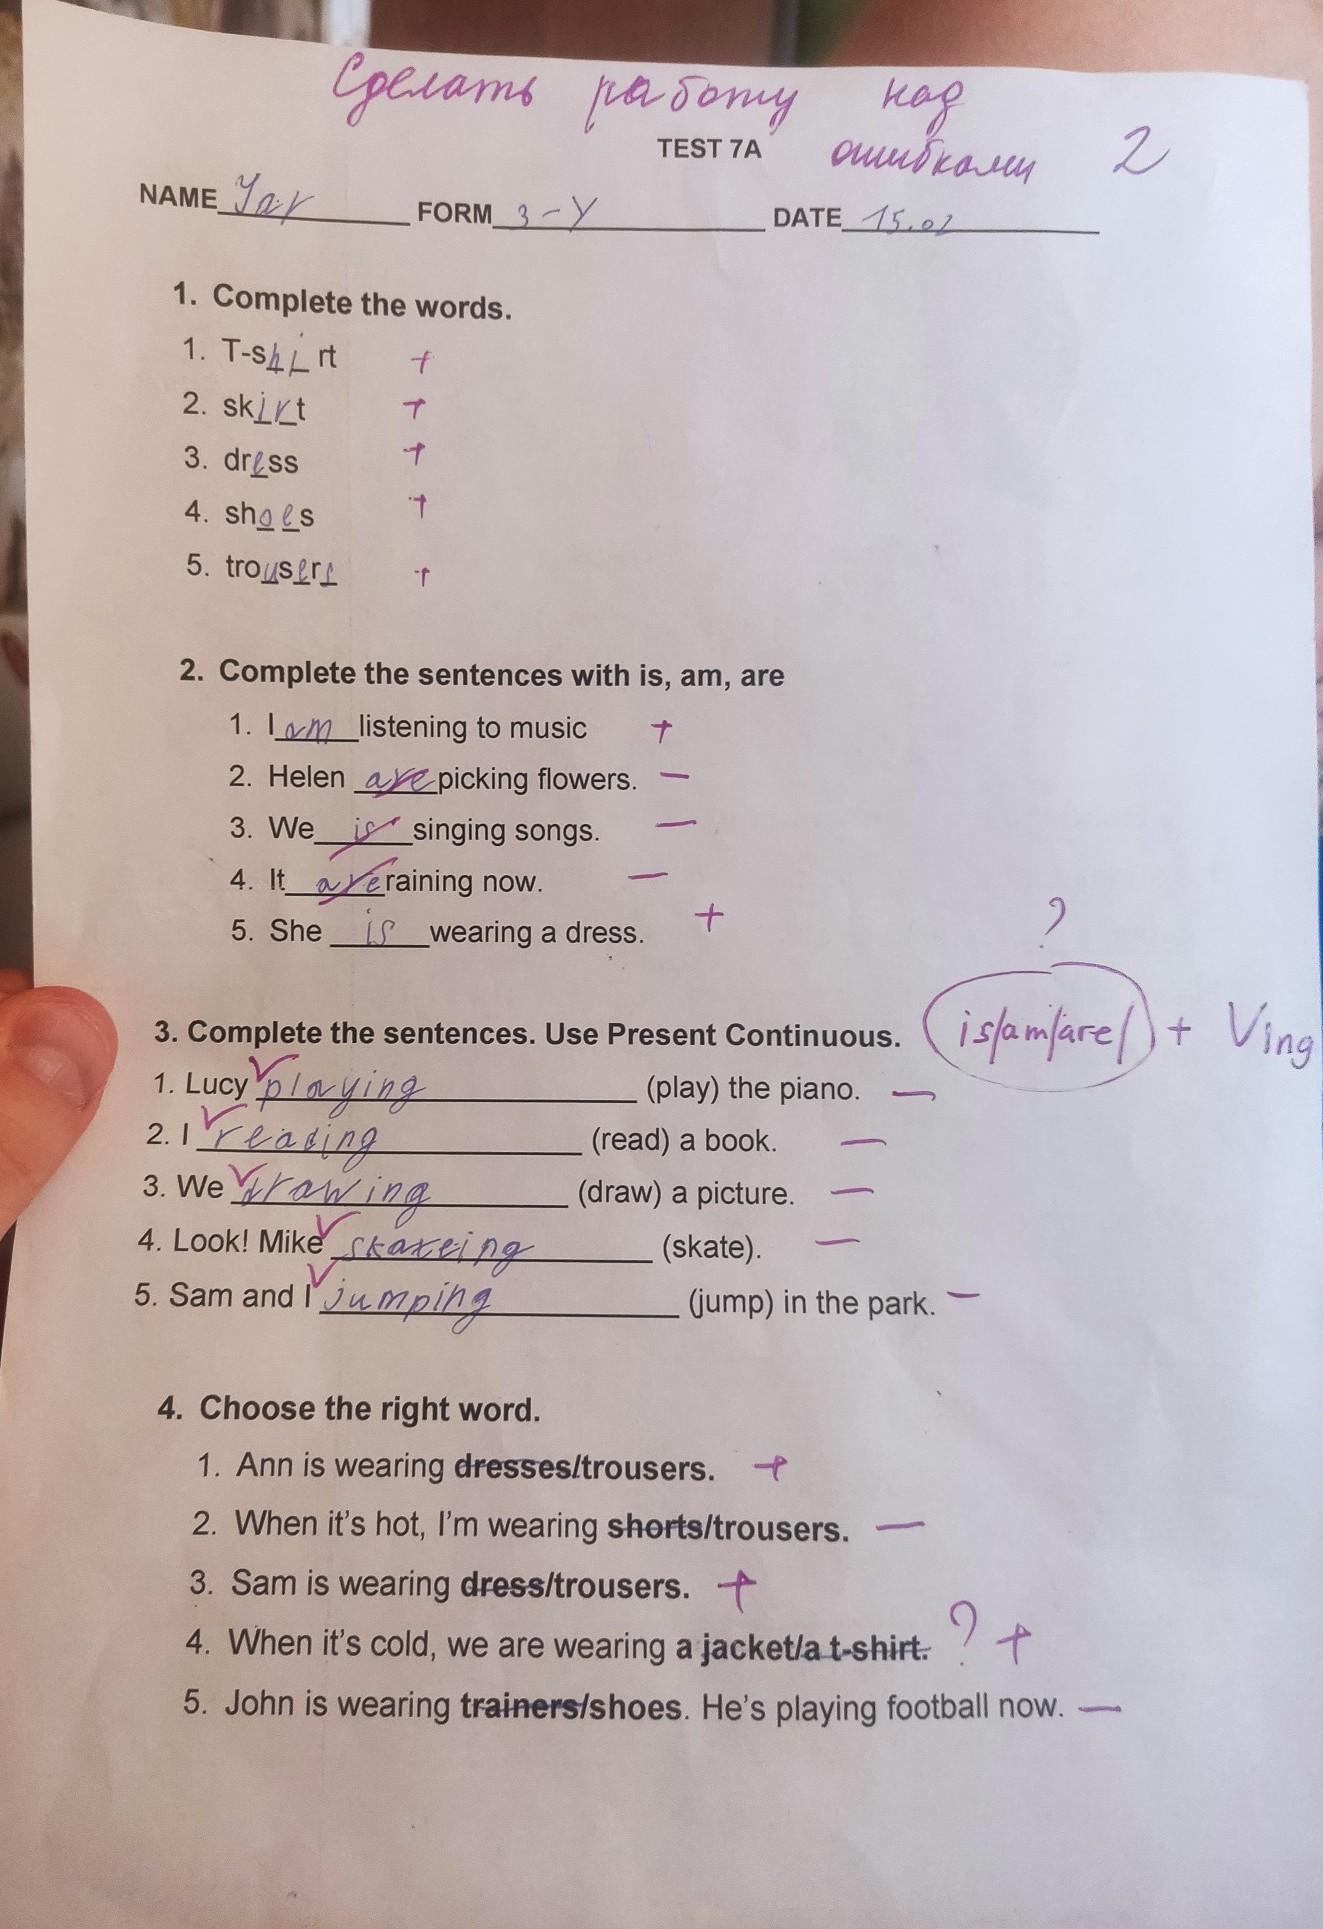 Сделать работу над
TEST 7A ошибками 2
NAME Yar FORM 3-Y DATE 15.02
1. Complete the words.
1. T-shirt +
2. skirt +
3. dress +
4. shoes +
5. trousers +
2. Complete the sentences with is, am, are
1. I am listening to music +
2. Helen are picking flowers. —
3. We is singing songs. —
4. It are raining now. —
5. She is wearing a dress. +
?
3. Complete the sentences. Use Present Continuous. is/am/are/ + Ving
1. Lucy playing (play) the piano. —
2. I reading (read) a book. —
3. We drawing (draw) a picture. —
4. Look! Mike skateing (skate). —
5. Sam and I jumping (jump) in the park. —
4. Choose the right word.
1. Ann is wearing dresses/trousers. +
2. When it's hot, I'm wearing shorts/trousers. —
3. Sam is wearing dress/trousers. +
4. When it's cold, we are wearing a jacket/a t-shirt. ? +
5. John is wearing trainers/shoes. He's playing football now. —